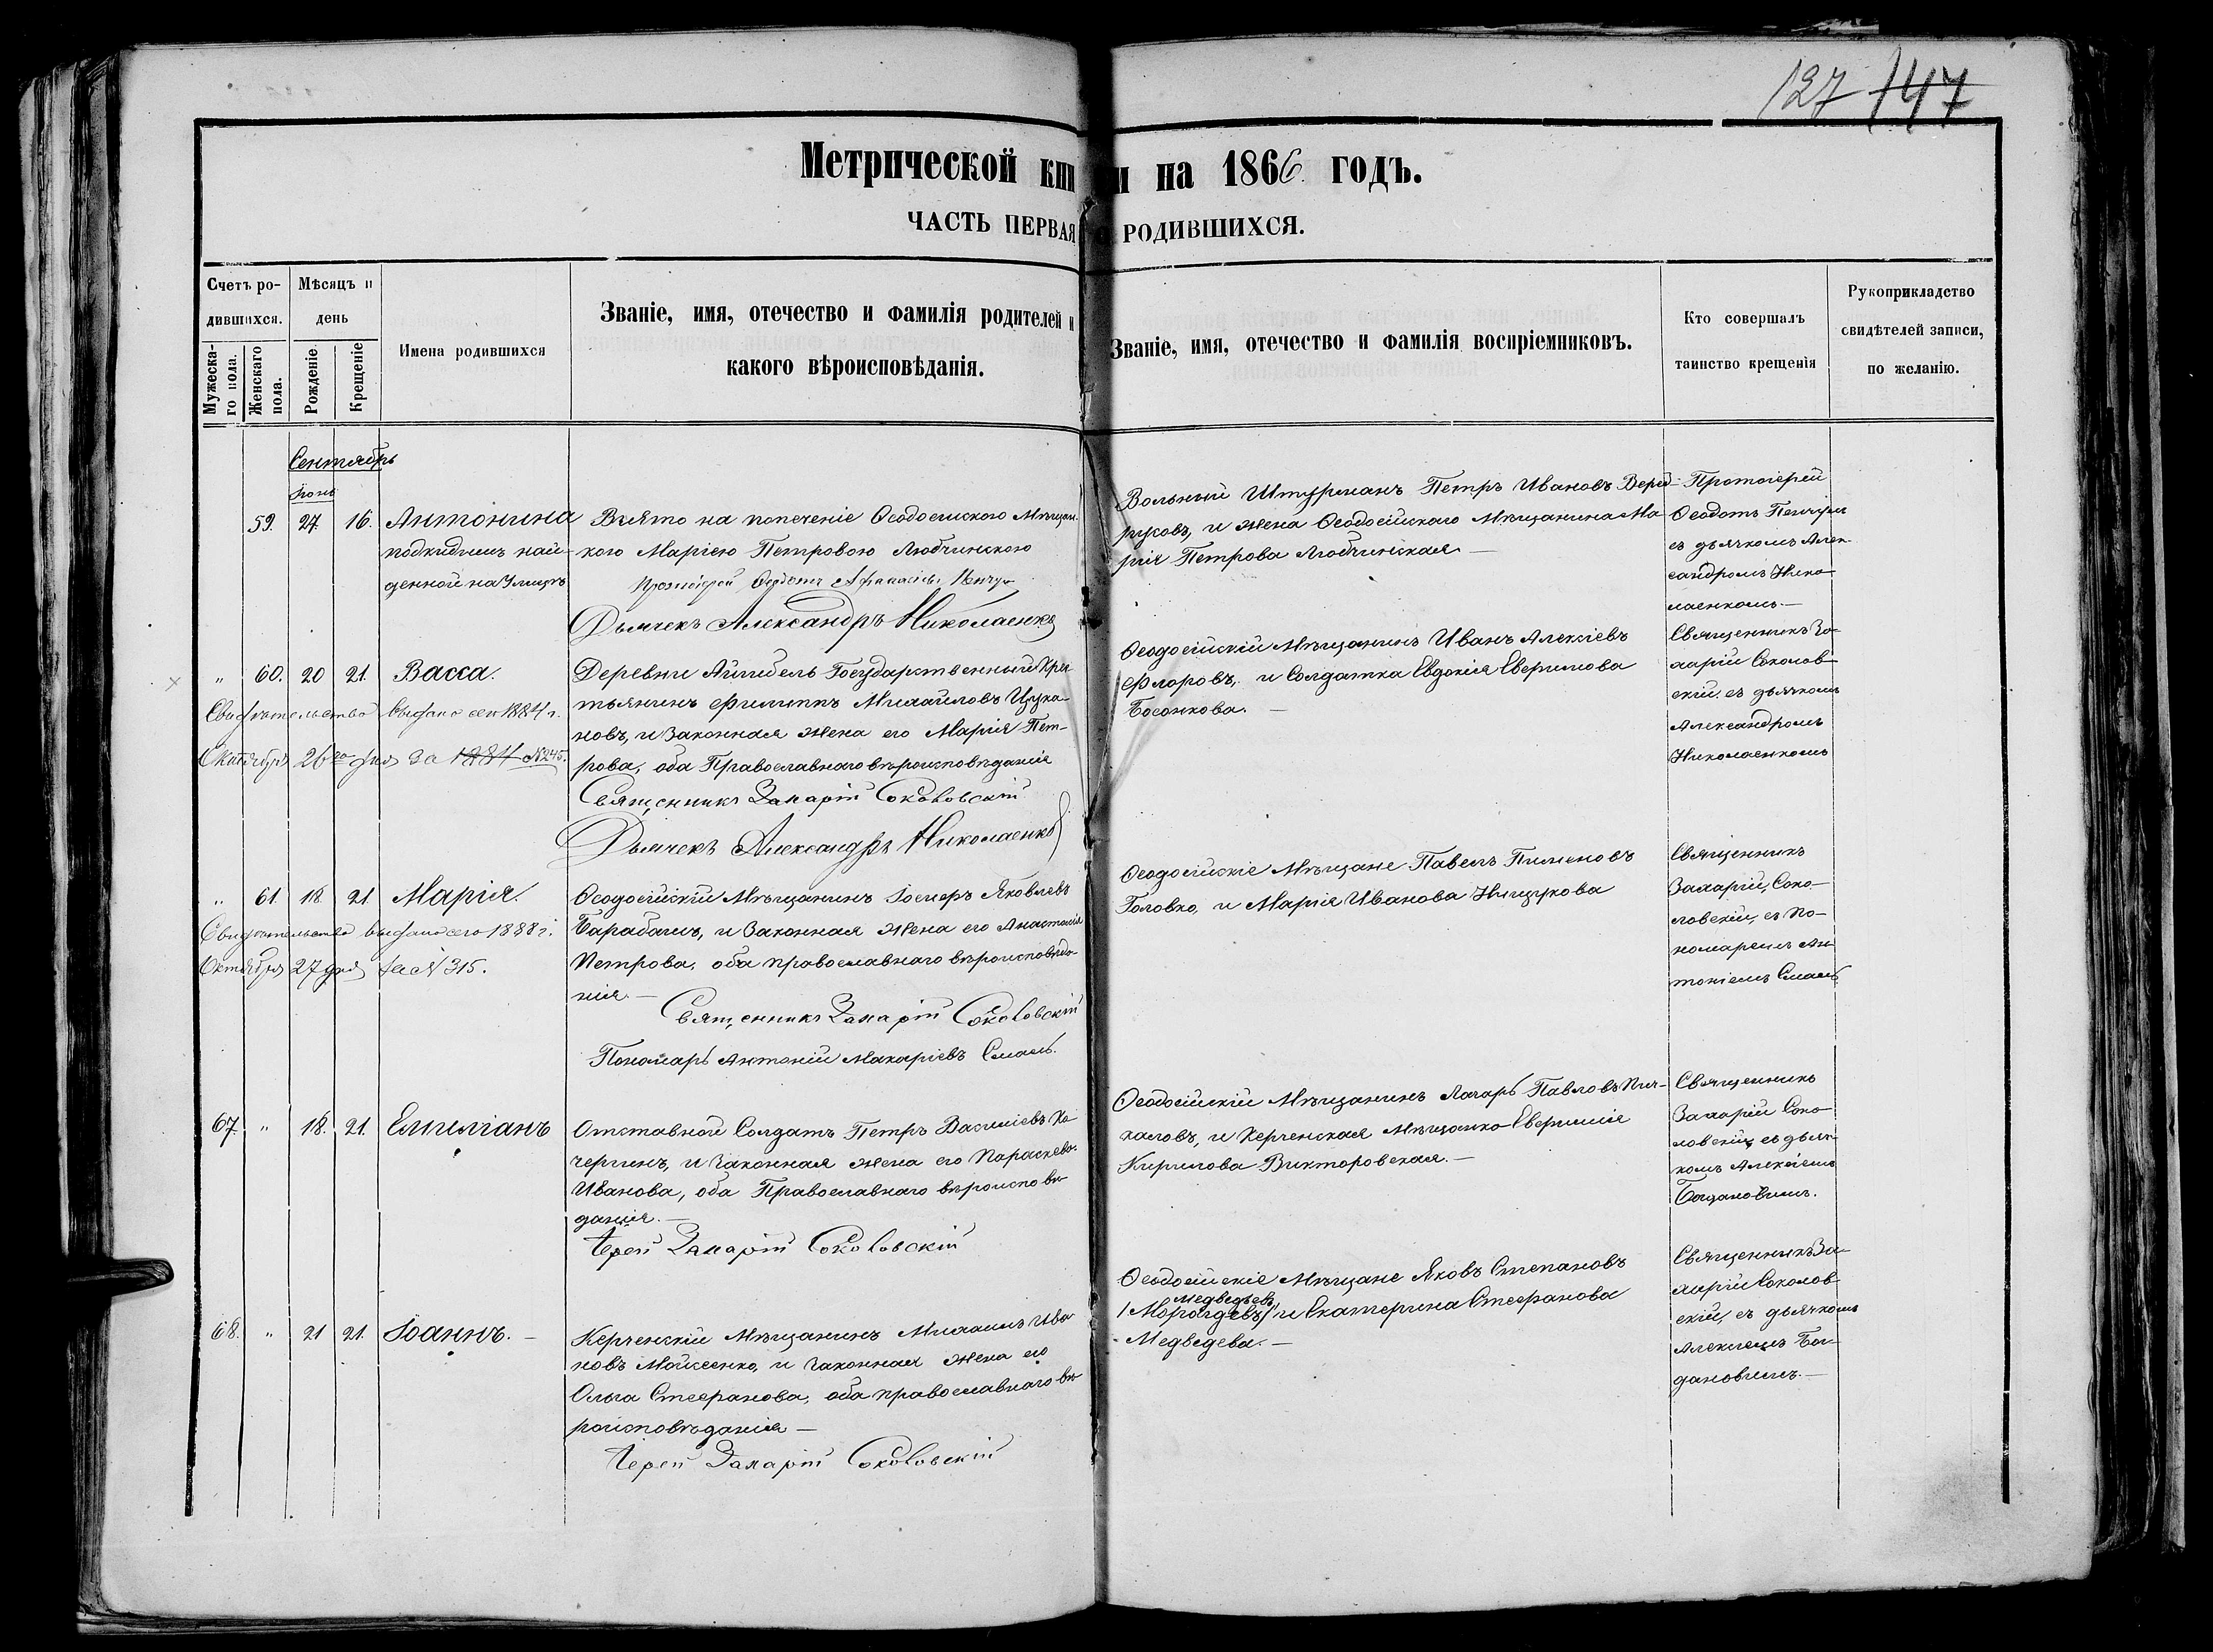 127 147
Метрической книги на 1866 годъ.
ЧАСТЬ ПЕРВАЯ О РОДИВШИХСЯ.
Счетъ ро-
дившихся.
Мужеска-
го пола.
Женскаго
пола.
Мѣсяцъ и
день
Рожденіе.
Крещеніе
Имена родившихся
Званіе, имя, отечество и фамилія родителей и
какого вѣроисповѣданія.
Званіе, имя, отечество и фамилія воспріемниковъ.
Кто совершалъ
таинство крещенія
Рукоприкладство
свидѣтелей записи,
по желанію.
Сентябрь
59. 27. 16. Антонина
подкидышъ най-
денной на Улицѣ
Взято на попеченіе Ѳеодосійскою Мѣщан-
кою Маріею Петровою Любчинскою
Протоіерей Ѳеодотъ Афанасіевъ
Дьячекъ Александръ Николаенко
Вольный Штурманъ Петръ Ивановъ
и жена Ѳеодосійскаго Мѣщанина Ма
рія Петрова Любчинская —
Протоіерей
Ѳеодотъ
съ дьячкомъ Алек-
сандромъ Нико-
лаенкомъ. —
„ 60. 20 21. Васса.
Свидѣтельство выдано сего 1884 г.
Октября 26го дня за 1884 №245.
Деревни Айгибель Государственный Крес
тьянинъ Филиппъ Михайловъ Цука-
новъ, и Законная жена его Марія Пет-
рова, оба Православнаго вѣроисповѣданія
Священникъ Захарій Соколовскій
Дьячекъ Александръ Николаенко
Ѳеодосійскій Мѣщанинъ Иванъ Алексіевъ
Флоровъ, и Солдатка Евдокія Ефримова
Босонкова. —
Священникъ За-
харій Соколов-
скій, съ дьячкомъ
Александромъ
Николаенкомъ
„ 61. 18. 21 Марія.
Свидѣтельство выдано сего 1888 г.
Октября 27 дня за № 315.
Ѳеодосійскій Мѣщанинъ Іосифъ Яковлевъ
Барабашъ, и Законная жена его Анастасія
Петрова, оба православнаго вѣроисповѣда-
нія —
Священникъ Захарій Соколовскій
Пономарь Антоній Макаріевъ Смаль.
Ѳеодосійскіе Мѣщане Павелъ Пименовъ
Головко, и Марія Иванова Нищукова
Священникъ
Захарій Соко-
ловскій, съ По-
номаремъ Ан-
тоніемъ Смаль
67. „ 18. 21. Емиліанъ
Отставной Солдатъ Петръ Василіевъ Ко-
чергинъ, и Законная жена его Параскева
Иванова, оба Православнаго вѣроисповѣ
данія. —
Іерей Захарій Соколовскій
Ѳеодосійскій Мѣщанинъ Лазарь Павловъ Пич-
каловъ, и Керченская Мѣщанка Евфимія
Кирилова Викторовская. —
Священникъ
Захарій Соко-
ловскій, съ дьяч-
комъ Алексѣемъ
Богдановымъ.
68. „ 21 21. Іоаннъ. —
Керченскій Мѣщанинъ Михаилъ Ива
новъ Мойсеенко, и Законная жена его
Ольга Стефанова, оба православнаго вѣ-
роисповѣданія —
Іерей Захарій Соколовскій
Ѳеодосійскіе Мѣщане Яковъ Степановъ
Медведевъ
и Екатерина Стефанова
Медведева. —
Священникъ За-
харій Соколов-
скій, съ дьячкомъ
Алексѣемъ Бог-
дановымъ. —